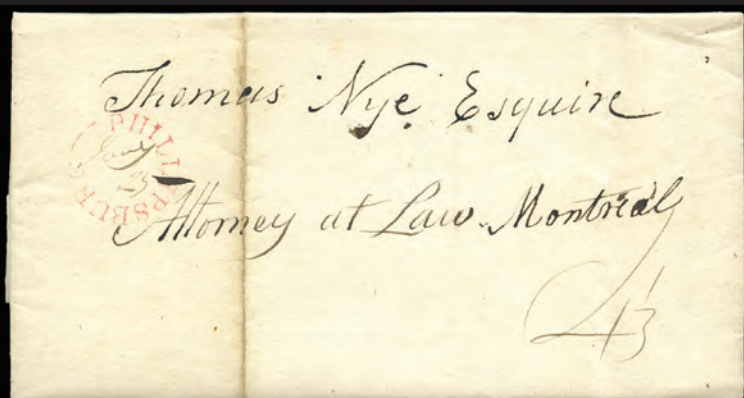 Thomas Nye Esquire
PHILLIPSBURG
23
Attorney at Law Montreal